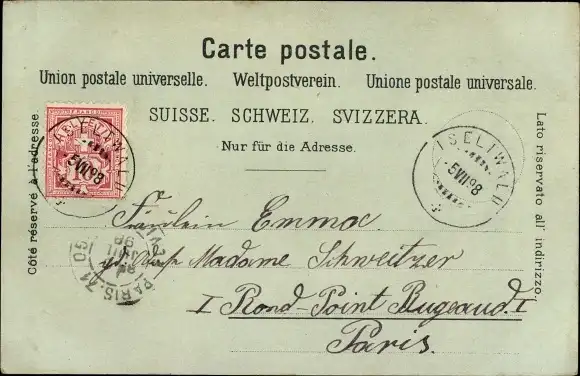 Carte postale.
Union postale universelle. Weltpostverein. Unione postale universale.
SUISSE. SCHWEIZ. SVIZZERA.
Nur für die Adresse.
Côté réservé à l'adresse.
Lato riservato all' indirizzo.
ISELTWALD
5 VII 98
ISELTWALD
5 VII 98
PARIS
Fräulein Emma
Madame Schweitzer
1 Rond-Point Bugeaud. 1
Paris.